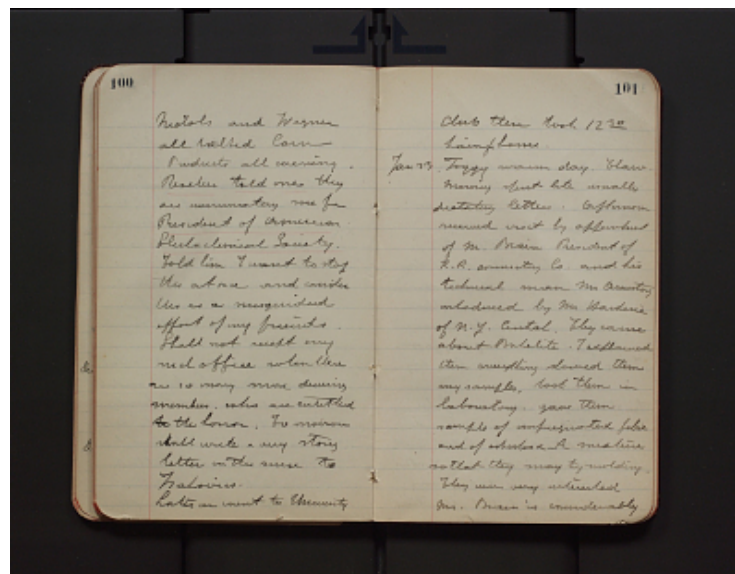 100
Nichols and Wagner
all talked Corn
Products all evening.
told me they
are me for
President of American
Electrochemical Society.
Told him I want to stop
this at once and consider
this as a misguided
effort of my friends.
Shall not accept any
such office when there
are so many more deserving
members, who are entitled
to the honor. To morrow
shall write a very strong
letter in this sense to

Later on went to University
101
Club then took 12 30
train home.
Jan 23. Foggy warm day.
Morning first late usually
dictating letters. Afternoon
received visit by appointment
of Mr. President of
R.R. Co. and his
technical man Mr
introduced by Mr
of N.Y. Central. They came
about Bakelite. I explained
them everything showed them
my samples, took them in
laboratory gave them
sample of impregnated fibre
and of A mixture
so that they may try molding.
They were very interested
Mr. is considerably